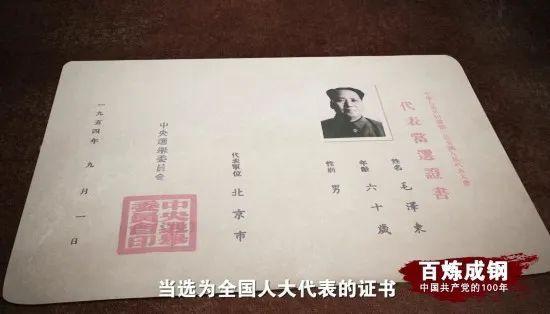 中華人民共和國第一屆全國人民代表大會
代表當選證書
姓名 毛澤東
年齡 六十歲
性別 男
代表單位 北京市
中央選舉委員會
中央選舉委員會印
一九五四年九月一日
当选为全国人大代表的证书
百炼成钢
中国共产党的100年